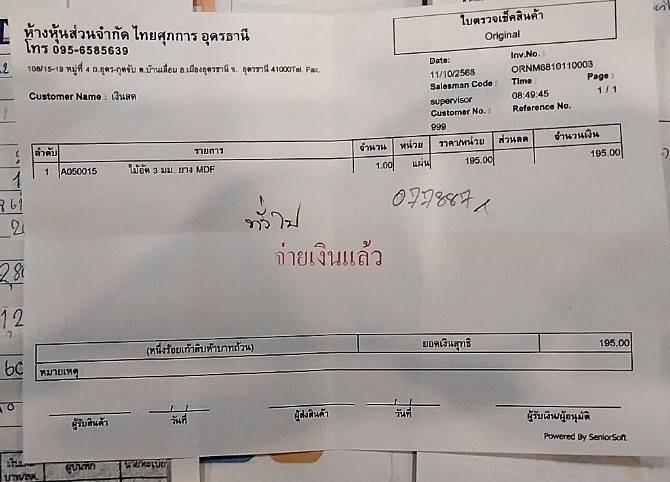 ห้างหุ้นส่วนจำกัด ไทยศุภการ อุดรธานี
โทร 095-6585639
108/15-19 หมู่ที่ 4 ถ.อุดร-กุดจับ ต.บ้านเลื่อม อ.เมืองอุดรธานี จ. อุดรธานี 41000Tel. Fax.
Customer Name : เงินสด
ใบตรวจเช็คสินค้า
Original
Date: Inv.No. :
11/10/2568 ORNM6810110003
Salesman Code : Time : Page :
supervisor 08:49:45 1 / 1
Customer No. : Reference No.
999
ลำดับ รายการ จำนวน หน่วย ราคา/หน่วย ส่วนลด จำนวนเงิน
1 A050015 ไม้อัด 3 มม. ยาง MDF 1.00 แผ่น 195.00 195.00
ทั่วไป 077887
จ่ายเงินแล้ว
(หนึ่งร้อยเก้าสิบห้าบาทถ้วน) ยอดเงินสุทธิ 195.00
หมายเหตุ
ผู้รับสินค้า วันที่ ผู้ส่งสินค้า วันที่ ผู้รับเงิน/ผู้อนุมัติ
Powered By SeniorSoft